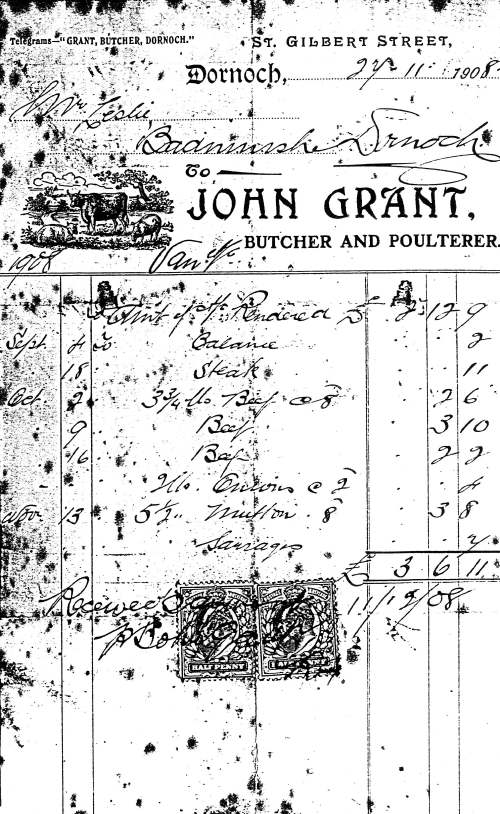 Telegrams—"GRANT, BUTCHER, DORNOCH."
ST. GILBERT STREET,
Dornoch, 27. 11. 1908.
Leslie
Badninish Dornoch
To
JOHN GRANT,
BUTCHER AND POULTERER.
1908 Van
Amt of Rendered £ 2 12 9
Sept 4 To Balance 2
18 Steak 11
Oct 2 3¾ lb Beef @ 8 2 6
9 Beef 3 10
16 Beef 2 2
2 lb. Onions @ 2 4
Nov 13 5½ " Mutton 8 3 8
Sausages 7
£ 3 6 11
Received 11/12/08
HALF PENNY HALF PENNY